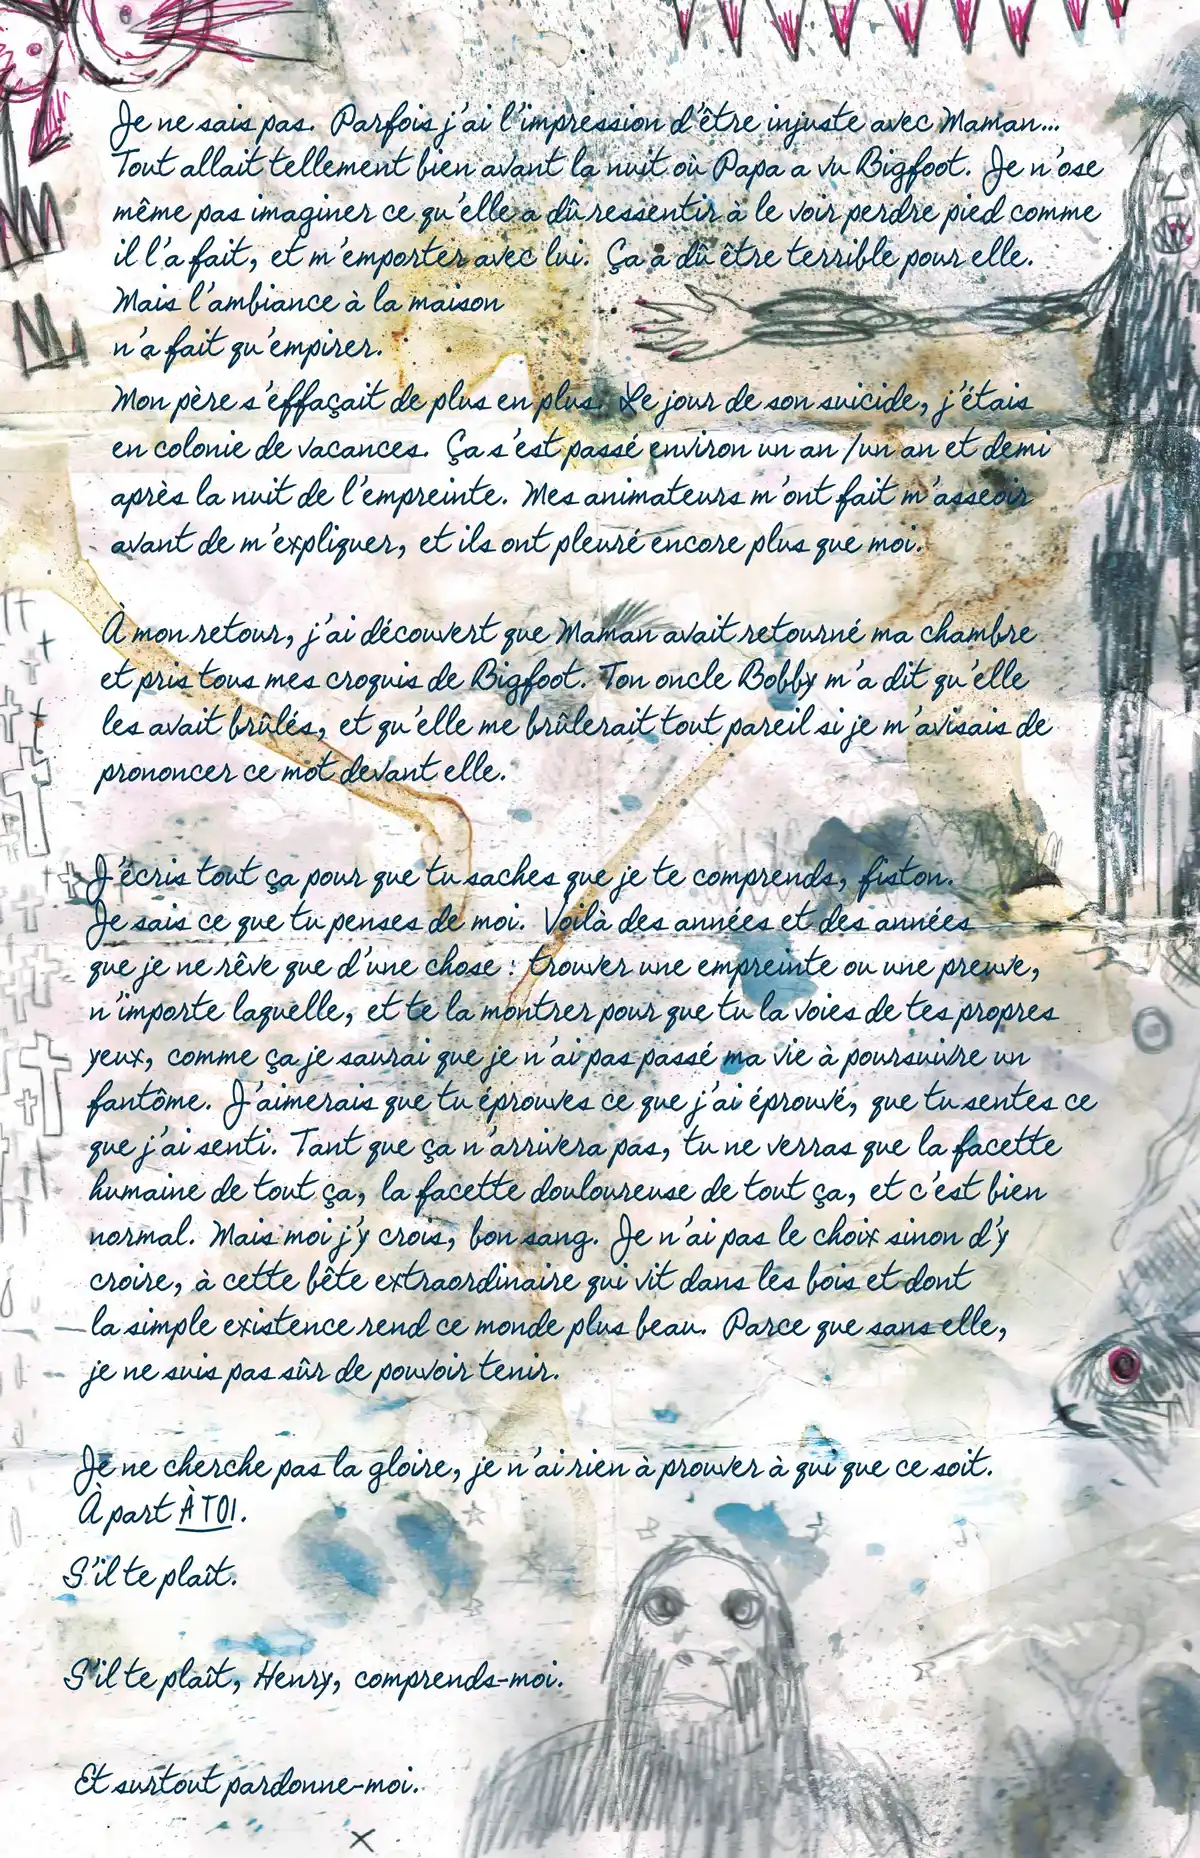 Je ne sais pas. Parfois j'ai l'impression d'être injuste avec Maman...
Tout allait tellement bien avant la nuit où Papa a vu Bigfoot. Je n'ose
même pas imaginer ce qu'elle a dû ressentir à le voir perdre pied comme
il l'a fait, et m'emporter avec lui. Ça a dû être terrible pour elle.
Mais l'ambiance à la maison
n'a fait qu'empirer.
Mon père s'effaçait de plus en plus. Le jour de son suicide, j'étais
en colonie de vacances. Ça s'est passé environ un an / un an et demi
après la nuit de l'empreinte. Mes animateurs m'ont fait m'asseoir
avant de m'expliquer, et ils ont pleuré encore plus que moi.
À mon retour, j'ai découvert que Maman avait retourné ma chambre
et pris tous mes croquis de Bigfoot. Ton oncle Bobby m'a dit qu'elle
les avait brûlés, et qu'elle me brûlerait tout pareil si je m'avisais de
prononcer ce mot devant elle.
J'écris tout ça pour que tu saches que je te comprends, fiston.
Je sais ce que tu penses de moi. Voilà des années et des années
que je ne rêve que d'une chose : trouver une empreinte ou une preuve,
n'importe laquelle, et te la montrer pour que tu la voies de tes propres
yeux, comme ça je saurai que je n'ai pas passé ma vie à poursuivre un
fantôme. J'aimerais que tu éprouves ce que j'ai éprouvé, que tu sentes ce
que j'ai senti. Tant que ça n'arrivera pas, tu ne verras que la facette
humaine de tout ça, la facette douloureuse de tout ça, et c'est bien
normal. Mais moi j'y crois, bon sang. Je n'ai pas le choix sinon d'y
croire, à cette bête extraordinaire qui vit dans les bois et dont
la simple existence rend ce monde plus beau. Parce que sans elle,
je ne suis pas sûr de pouvoir tenir.
Je ne cherche pas la gloire, je n'ai rien à prouver à qui que ce soit.
À part À TOI.
S'il te plaît.
S'il te plaît, Henry, comprends-moi.
Et surtout pardonne-moi.